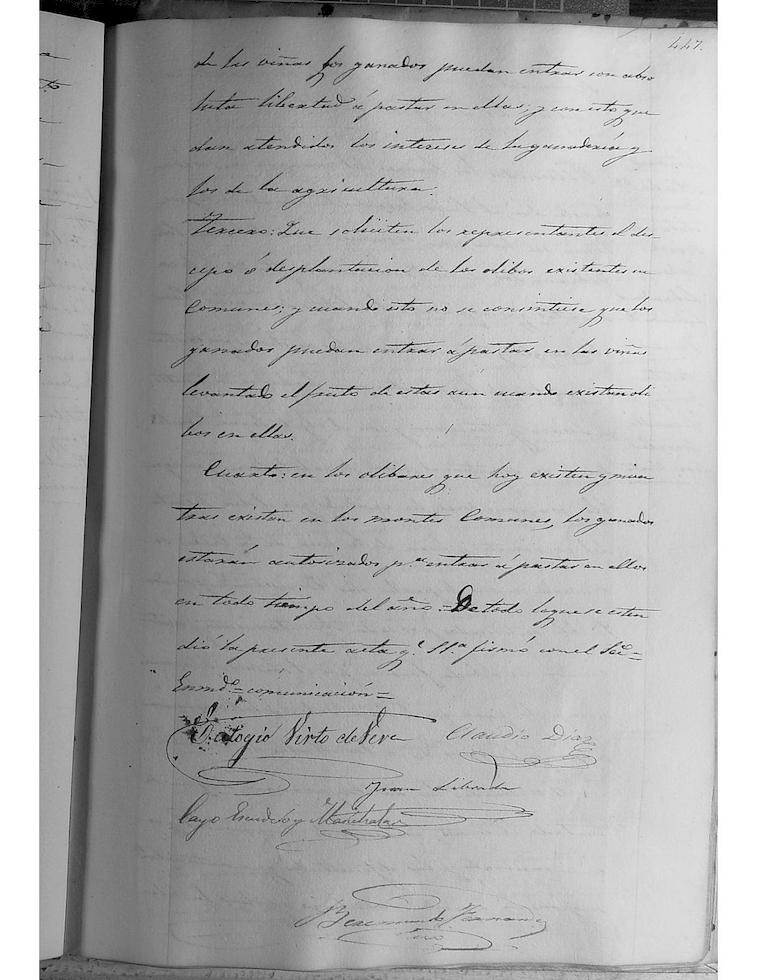 447.
de las viñas los ganados puedan entrar con abso
luta libertad á pastar en ellas; y con esto que
dan atendidos los intereses de la ganadería y
los de la agricultura.
Tercero: Que soliciten los representantes el des
cepo ó desplantacion de los olibos existentes en
Comunes; y cuando esto no se consintiese que los
ganados puedan entrar á pastar en las viñas
levantado el fruto de estas aún cuando existan oli
bos en ellas.
Cuarto: en los olibares que hoy existen y mien
tras existan en los montes Comunes, los ganados
estarán autorizados p.ª entrar á pastar en ellos
en todo tiempo del año. De todo lo que se esten
dió la presente acta q.e S.S.ª firmó con el Sec.o=
Enmd.o=comunicación=
Eulogio Virto de Vera Claudio Diaz
Juan Librada
Cayo Escudero y Marichalar
Beremundo Fernandez